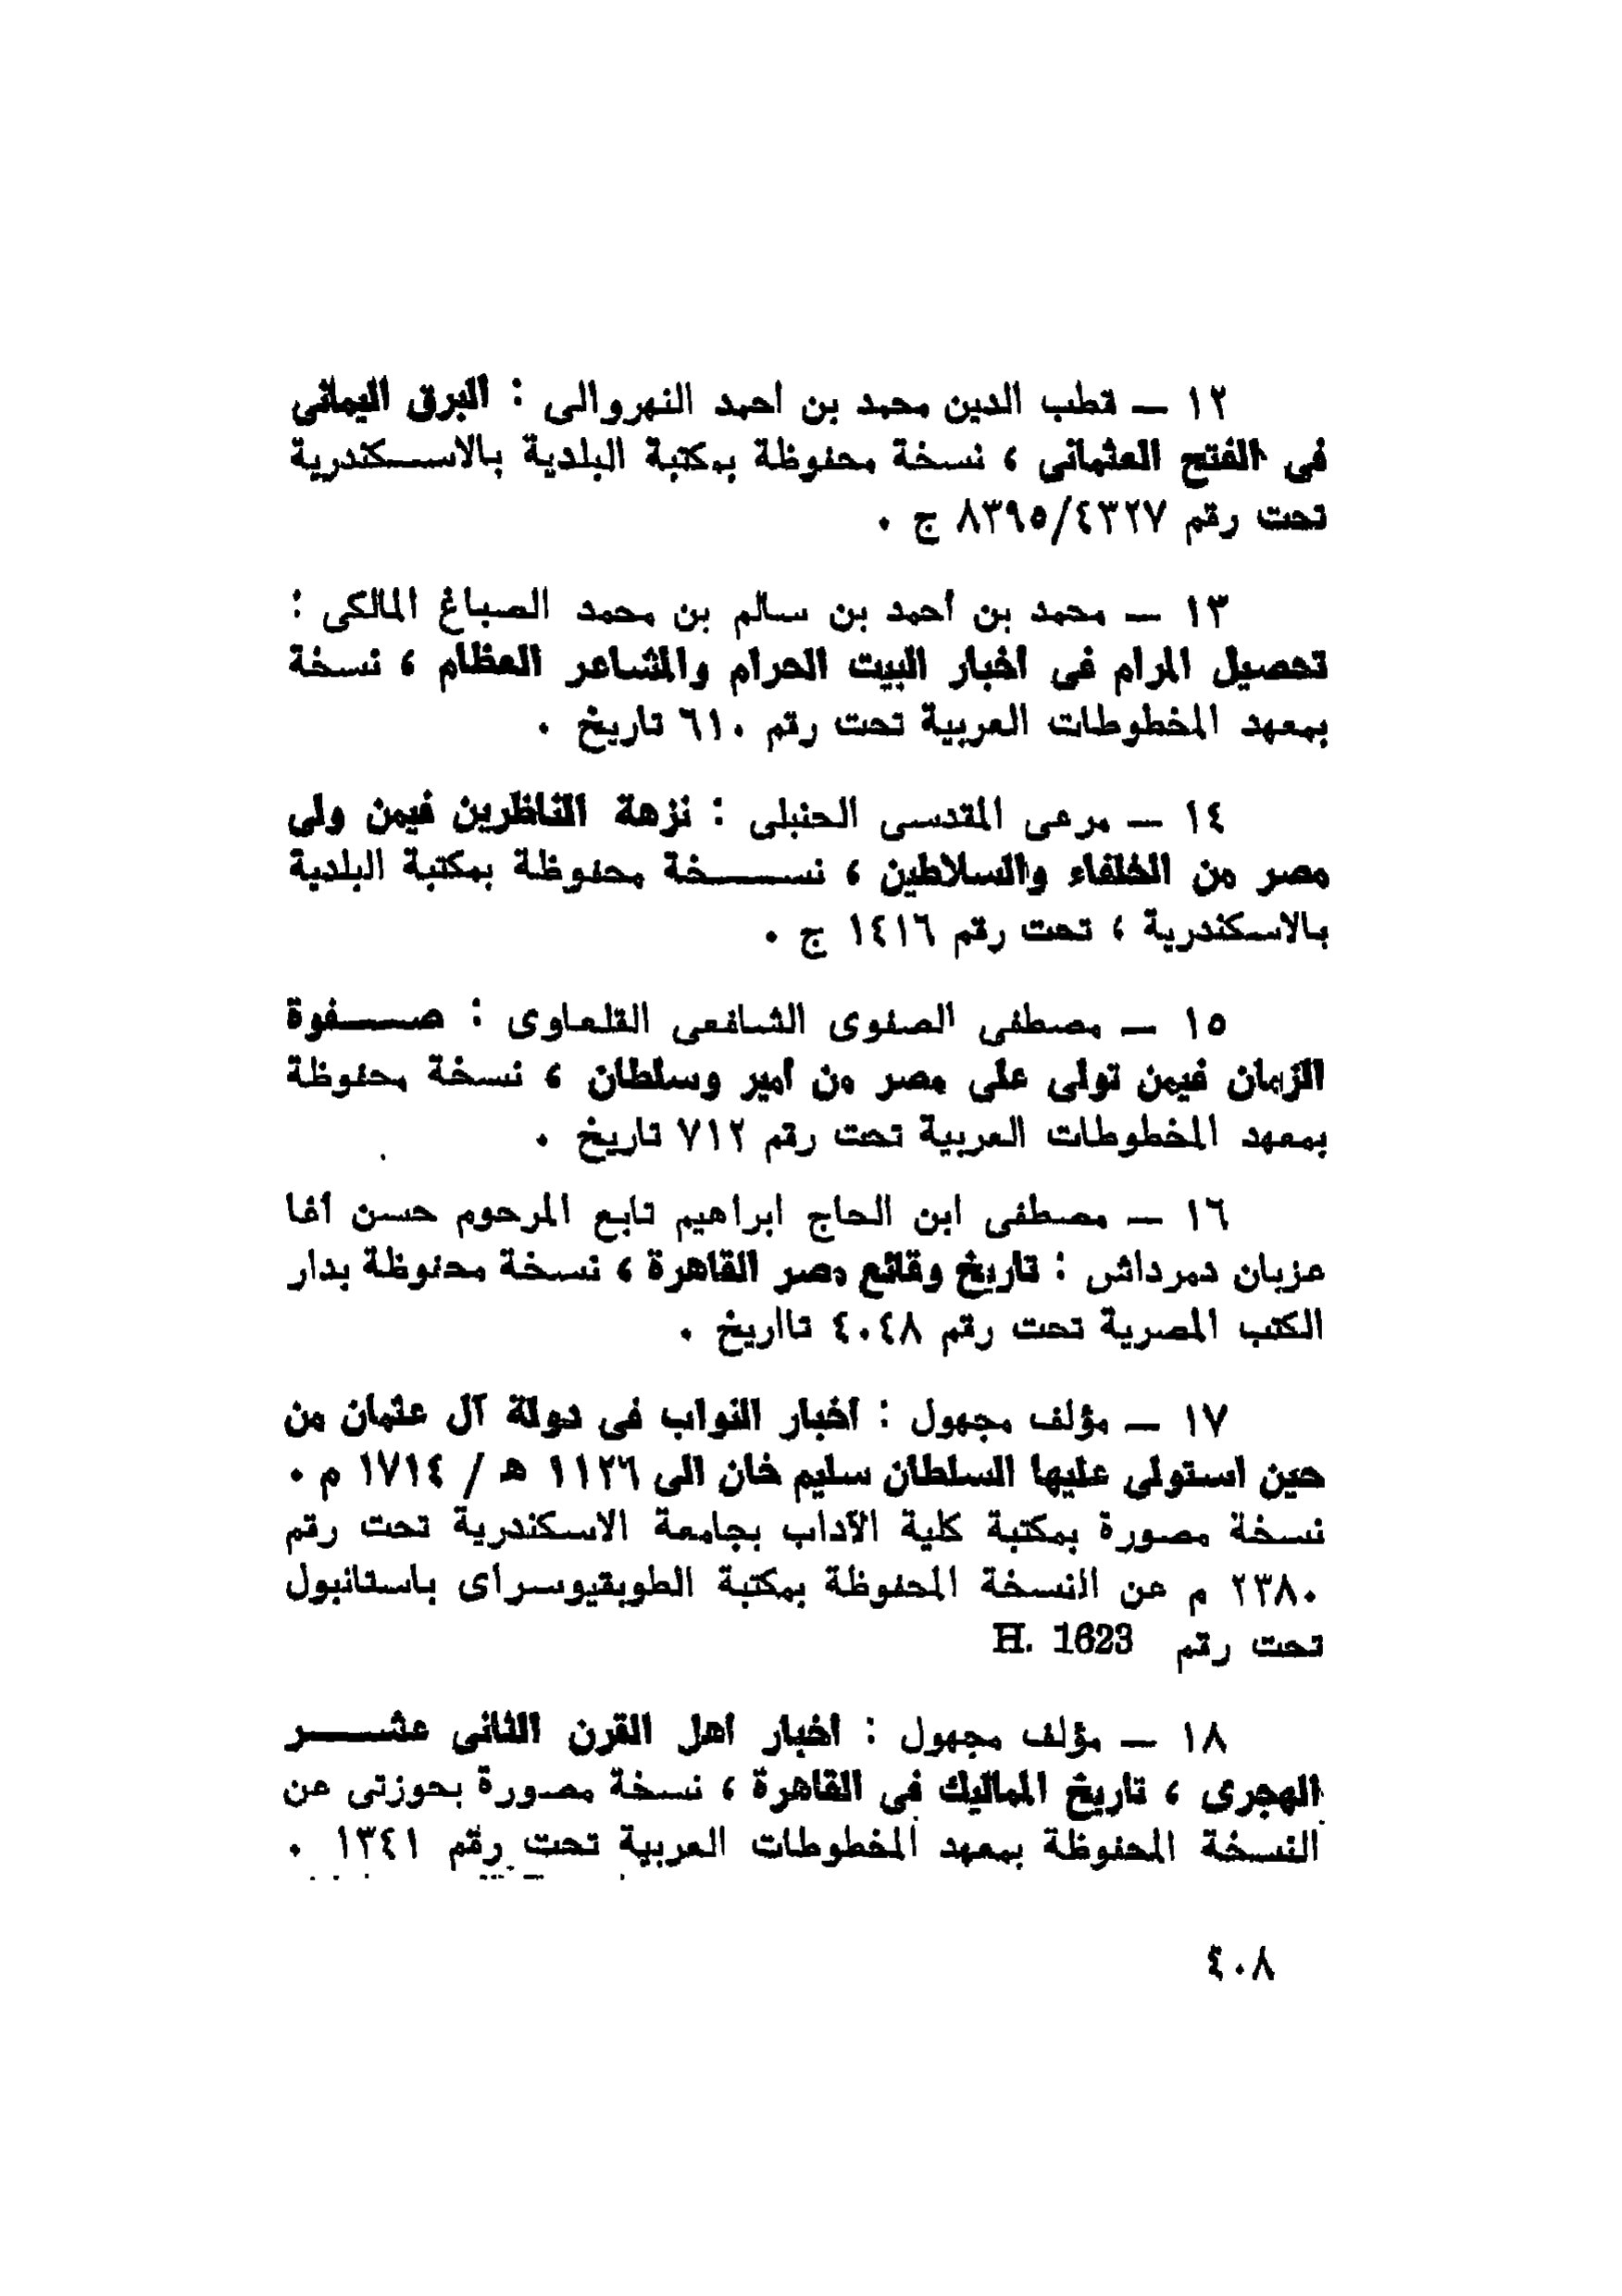 ١٢ — قطب الدين محمد بن احمد النهروالى : البرق اليمانى
فى الفتح العثمانى ، نسخة محفوظة بمكتبة البلدية بالاسكندرية
تحت رقم ٨٣٩٥/٤٣٢٧ ج .
١٣ — محمد بن أحمد بن سالم بن محمد الصباغ المالكى :
تحصيل المرام فى اخبار البيت الحرام والمشاعر العظام ، نسخة
بمعهد المخطوطات العربية تحت رقم ٦١٠ تاريخ .
١٤ — مرعى المقدسى الحنبلى : نزهة الناظرين فيمن ولى
مصر من الخلفاء والسلاطين ، نسخة محفوظة بمكتبة البلدية
بالاسكندرية ، تحت رقم ١٤١٦ ج .
١٥ — مصطفى الصفوى الشافعى القلعاوى : صفوة
الزمان فيمن تولى على مصر من أمير وسلطان ، نسخة محفوظة
بمعهد المخطوطات العربية تحت رقم ٧١٢ تاريخ .
١٦ — مصطفى ابن الحاج ابراهيم تابع المرحوم حسن أغا
عزبان دمرداش : تاريخ وقائع مصر القاهرة ، نسخة محفوظة بدار
الكتب المصرية تحت رقم ٤٠٤٨ تااريخ .
١٧ — مؤلف مجهول : أخبار النواب فى دولة آل عثمان من
حين استولى عليها السلطان سليم خان الى ١١٢٦ هـ / ١٧١٤ م .
نسخة مصورة بمكتبة كلية الآداب بجامعة الاسكندرية تحت رقم
٢٣٨٠ م عن النسخة المحفوظة بمكتبة الطوبقيوسراى باستانبول
تحت رقم H. 1623
١٨ — مؤلف مجهول : أخبار أهل القرن الثانى عشر
الهجرى ، تاريخ المماليك فى القاهرة ، نسخة مصورة بحوزتى عن
النسخة المحفوظة بمعهد المخطوطات العربية تحت رقم ١٣٤١ .
٤٠٨